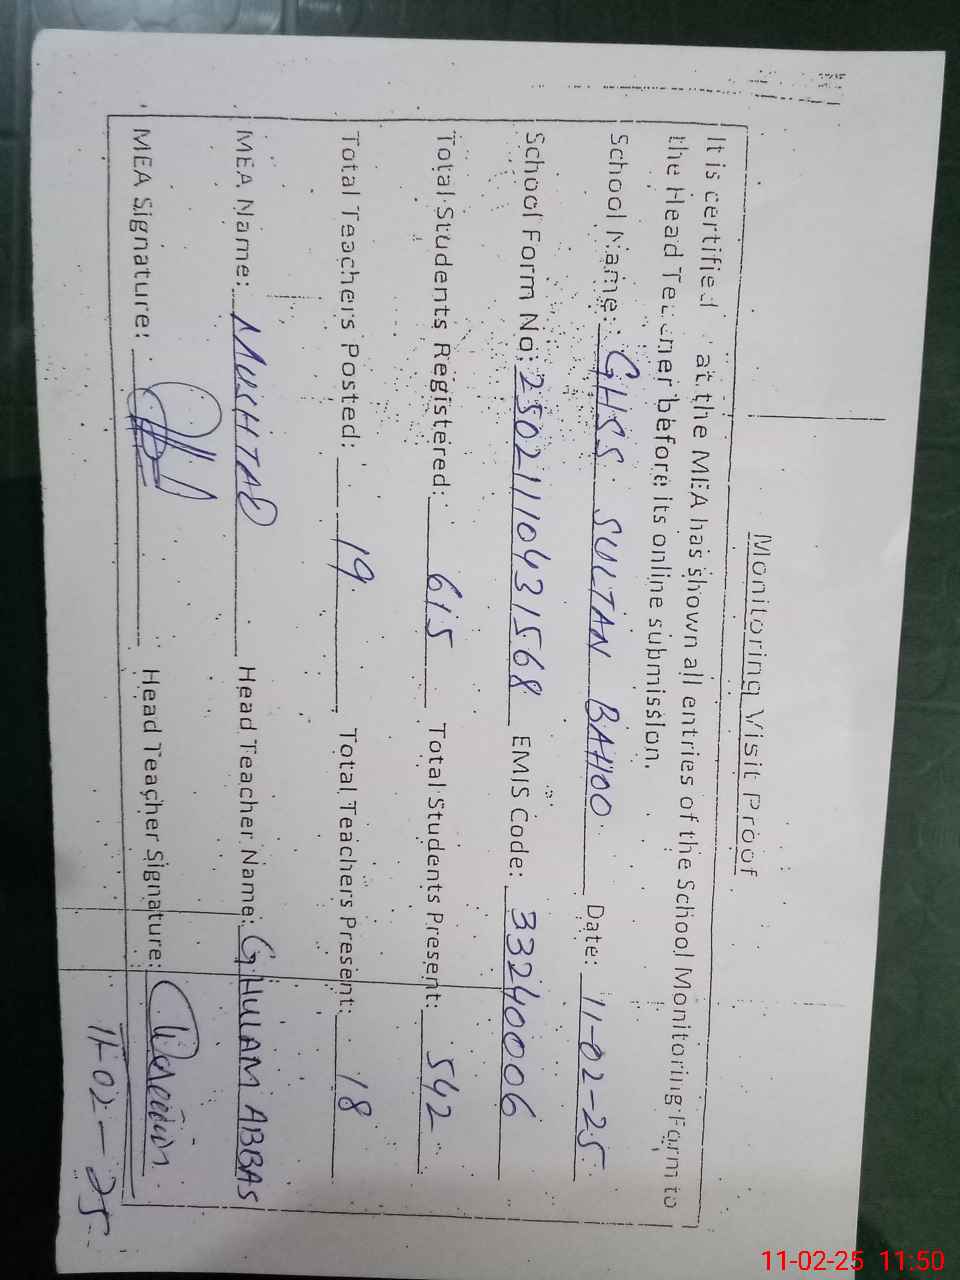 Monitoring Visit Proof
It is certified at the MEA has shown all entries of the School Monitoring Form to
the Head Teacher before its online submission.
School Name: GHSS SULTAN BAHOO Date: 11-02-25
School Form No: 25021110431568 EMIS Code: 33240006
Total Students Registered: 615 Total Students Present: 542
Total Teachers Posted: 19 Total Teachers Present: 18
MEA Name: MUSHTAQ Head Teacher Name: GHULAM ABBAS
MEA Signature: Head Teacher Signature:
11-02-25
11-02-25 11:50